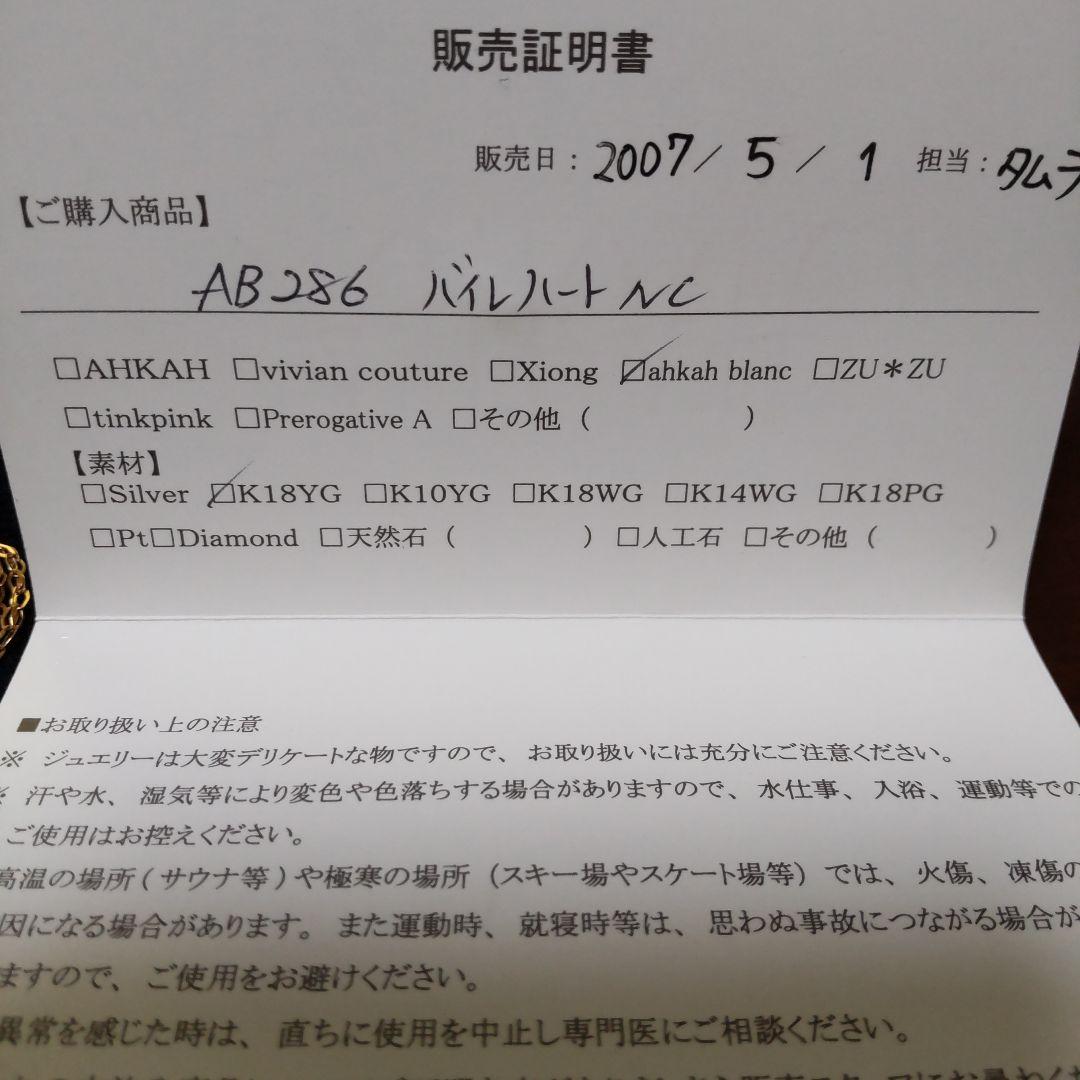 販売証明書
販売日： 2007 / 5 / 1 担当：タムラ
【ご購入商品】
AB286 バイレハート NC
□AHKAH □vivian couture □Xiong ☑ahkah blanc □ZU＊ZU
□tinkpink □Prerogative A □その他（ ）
【素材】
□Silver ☑K18YG □K10YG □K18WG □K14WG □K18PG
□Pt□Diamond □天然石（ ）□人工石 □その他（ ）
■お取り扱い上の注意
※ ジュエリーは大変デリケートな物ですので、お取り扱いには充分にご注意ください。
※ 汗や水、湿気等により変色や色落ちする場合がありますので、水仕事、入浴、運動等での
ご使用はお控えください。
高温の場所(サウナ等)や極寒の場所（スキー場やスケート場等）では、火傷、凍傷の
因になる場合があります。また運動時、就寝時等は、思わぬ事故につながる場合が
ますので、ご使用をお避けください。
異常を感じた時は、直ちに使用を中止し専門医にご相談ください。